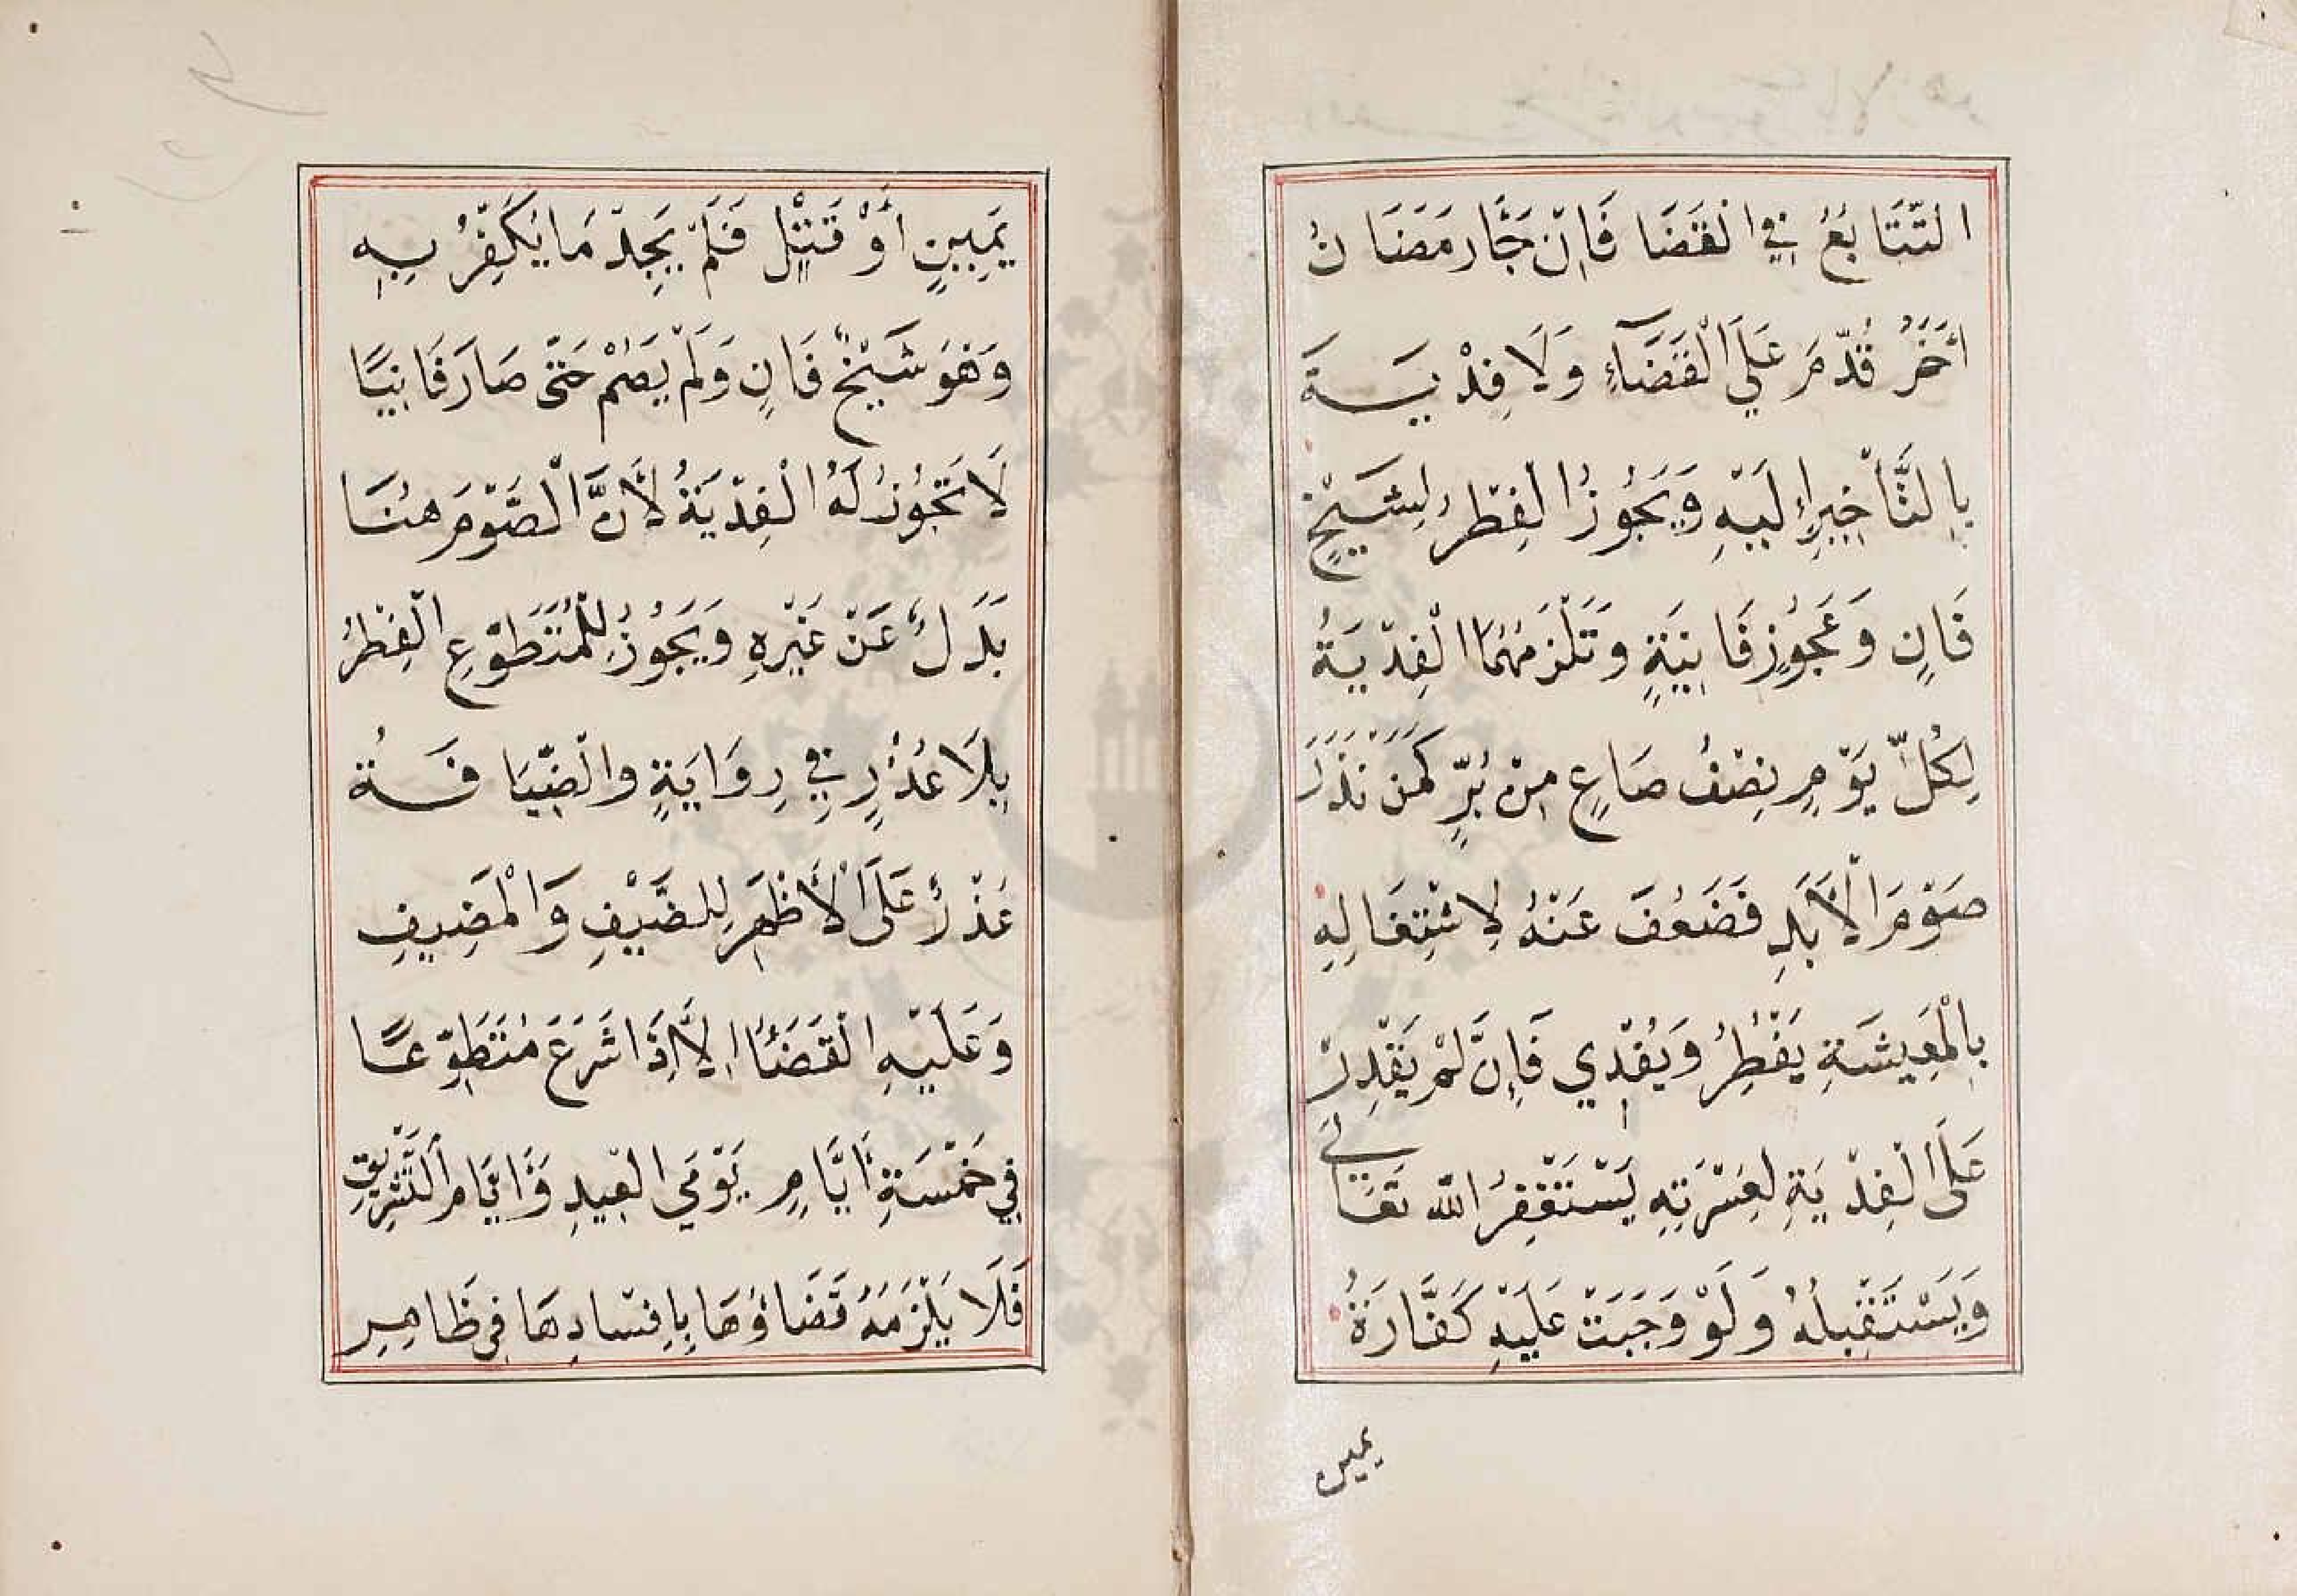 التَّتَابُعُ فِي الْقَضَا فَاِنْ جَآرَمَضَانُ
أَخَرُ قُدِّمَ عَلَي الْقَضَآءِ وَلَا فِدْيَةَ
بِالتَّأْخِيرِ إِلَيْهِ وَيَجُوزُ الْفِطْرُ لِشَيْخٍ
فَانٍ وَعَجُوزٍ فَانِيَةٍ وَتَلْزَمُهُمَا الْفِدْيَةُ
لِكُلِّ يَوْمٍ نِصْفُ صَاعٍ مِنْ بُرٍّ كَمَنْ نَذَرَ
صَوْمَ الْأَبَدِ فَضَعُفَ عَنْهُ لِاشْتِغَالِهِ
بِالْمَعِيشَةِ يَفْطُرُ وَيُفْدِي فَإِنْ لَمْ يَقْدِرْ
عَلَى الْفِدْيَةِ لِعُسْرَتِهِ يَسْتَغْفِرُ الله تَعَالَي
وَيَسْتَقْبِلُهُ وَلَوْ وَجَبَتْ عَلَيْهِ كَفَّارَةُ
يمين
يَمِيينٍ أَوْ قَتْلٍ فَلَمْ يَجِدْ مَا يُكَفِّرُ بِهِ
وَهُوَ شَيْخٌ فَانٍ وَلَمْ يَصُمْ حَتَّى صَارَ فَانِيًا
لَا تَجُوزُ لَهُ الْفِدْيَةُ لِأَنَّ الصَّوْمَ هُنَا
بَدَلٌ عَنْ غَيْرِهِ وَيَجُوزُ لِلْمُتَطَوِّعِ الْفِطْرُ
بِلَا عُذْرٍ فِي رِوَايَةٍ وَالضِّيَافَةُ
عُذْرٌ عَلَى الْأَظْهَرِ لِلضَّيْفِ وَالْمَضِيفِ
وَعَلَيْهِ الْقَضَاُ إِلَّا إِذَا شَرَعَ مُتَطَوِّعًا
فِي خَمْسَةِ أَيَّامٍ يَوْمَيِ الْعِيدِ وَأَيَّامِ التَّشْرِيقِ
فَلَا يَلْزَمُهُ قَضَاؤُهَا بِإِفْسَادِهَا فِي ظَاهِرِ